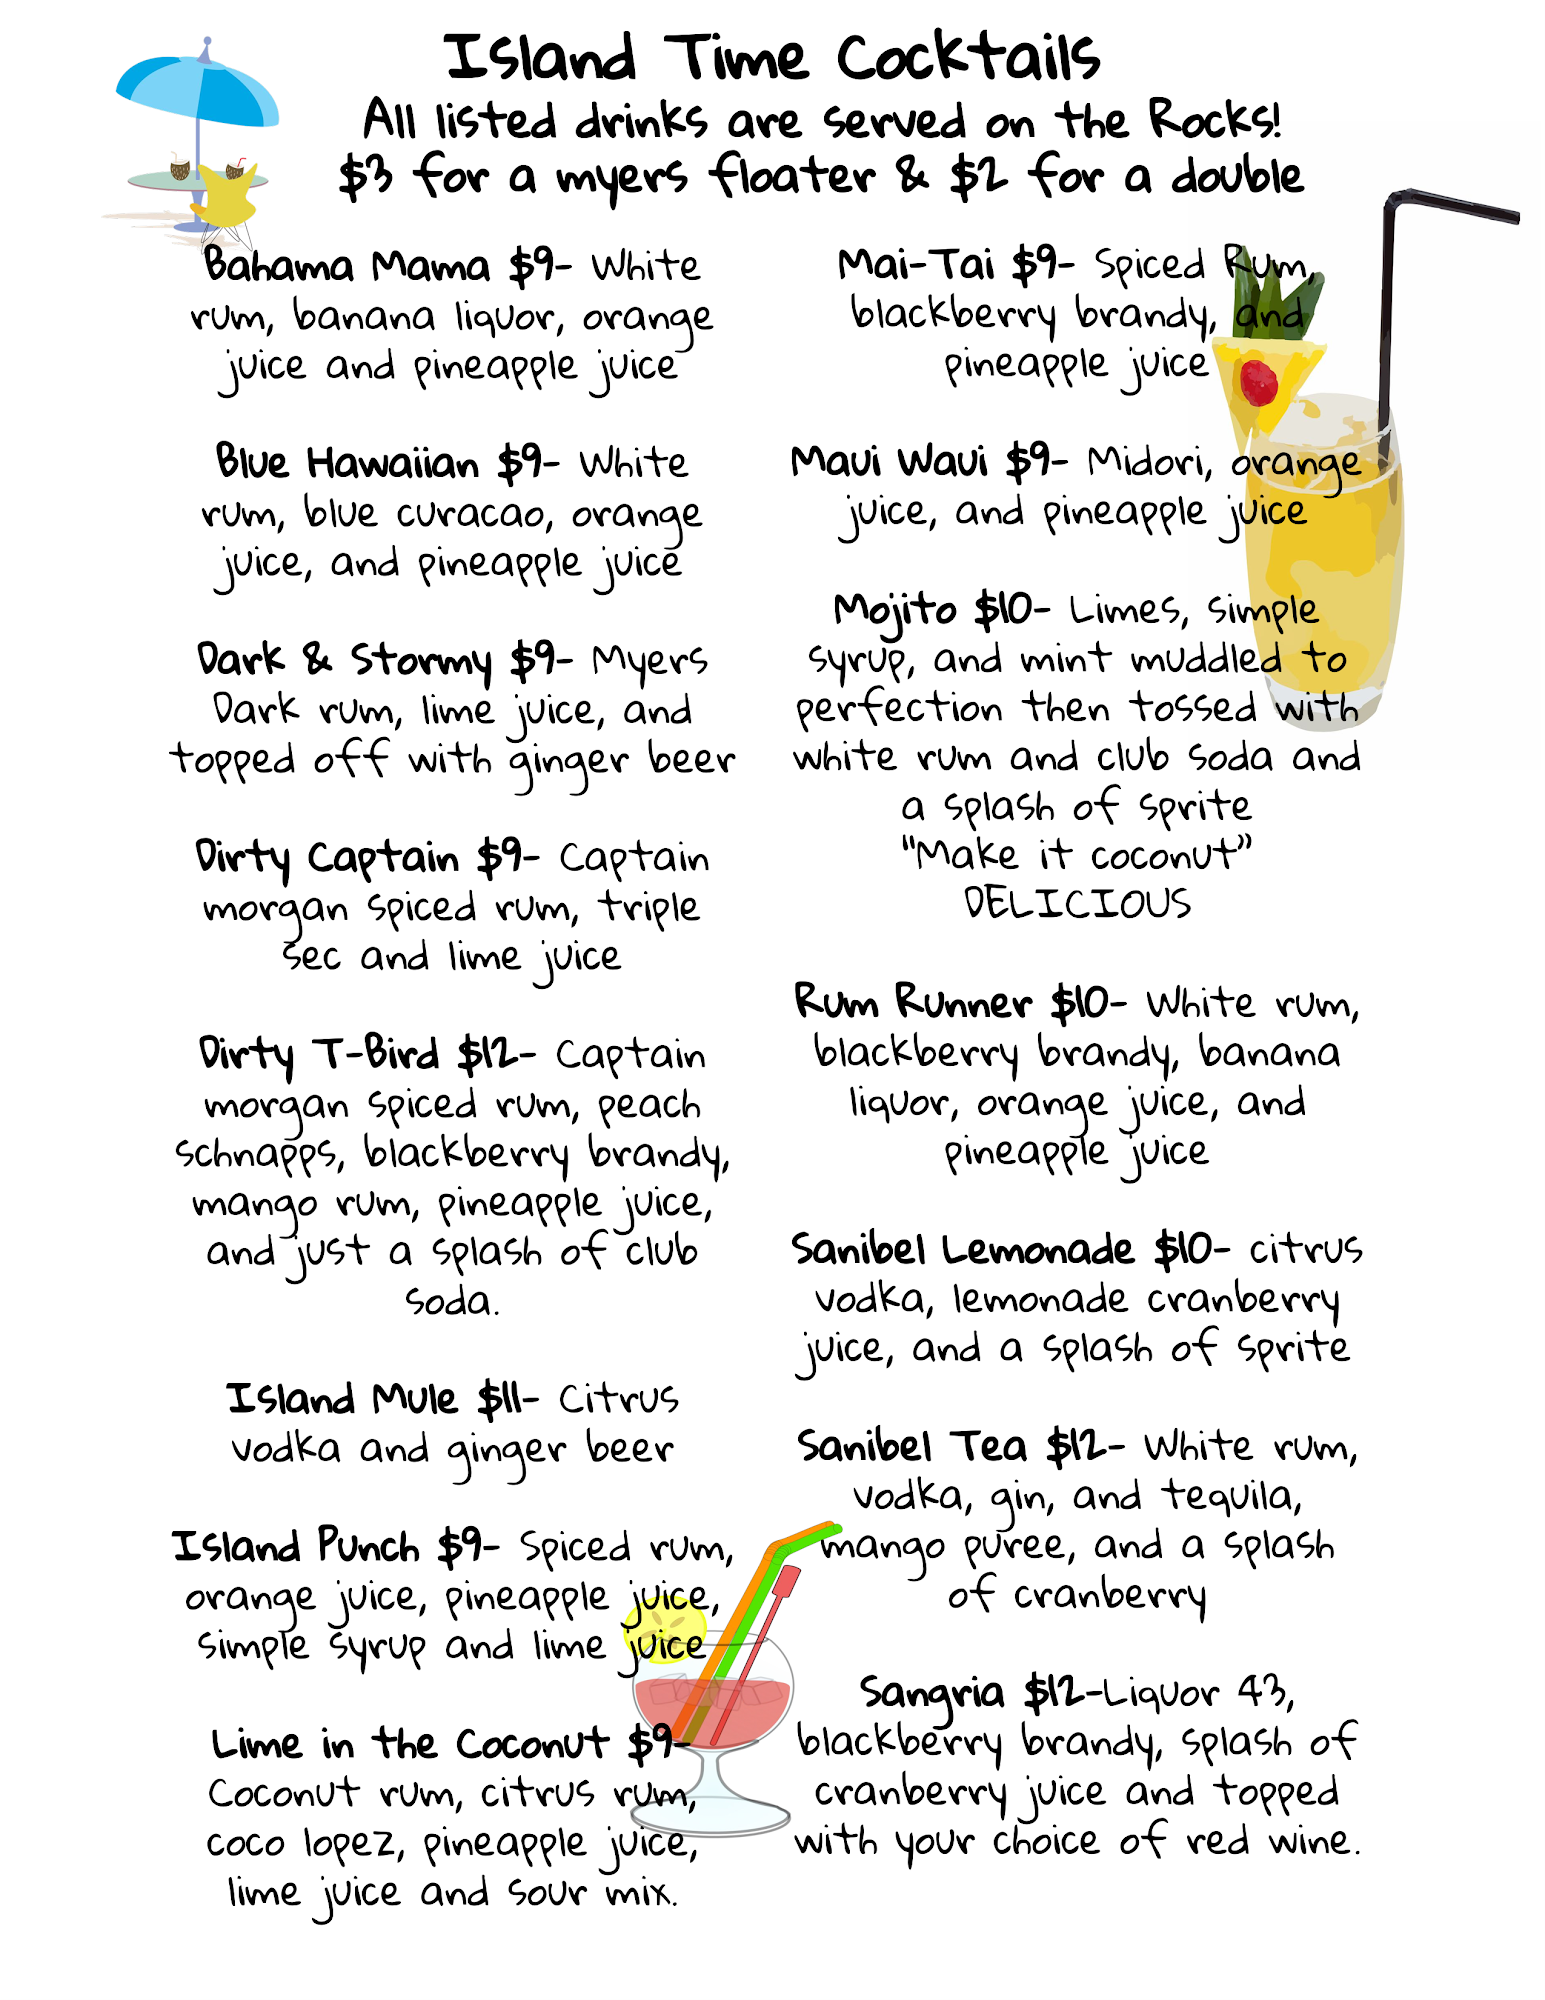 Island Time Cocktails
All listed drinks are served on the Rocks!
$3 for a myers floater & $2 for a double
Bahama Mama $9- White
rum, banana liquor, orange
juice and pineapple juice
Blue Hawaiian $9- White
rum, blue curacao, orange
juice, and pineapple juice
Dark & Stormy $9- Myers
Dark rum, lime juice, and
topped off with ginger beer
Dirty Captain $9- Captain
morgan spiced rum, triple
sec and lime juice
Dirty T-Bird $12- Captain
morgan spiced rum, peach
schnapps, blackberry brandy,
mango rum, pineapple juice,
and just a splash of club
soda.
Island Mule $11- Citrus
vodka and ginger beer
Island Punch $9- Spiced rum,
orange juice, pineapple juice,
simple syrup and lime juice
Lime in the Coconut $9-
Coconut rum, citrus rum,
coco lopez, pineapple juice,
lime juice and sour mix.
Mai-Tai $9- Spiced Rum,
blackberry brandy, and
pineapple juice
Maui Waui $9- Midori, orange
juice, and pineapple juice
Mojito $10- Limes, simple
syrup, and mint muddled to
perfection then tossed with
white rum and club soda and
a splash of sprite
"Make it coconut"
DELICIOUS
Rum Runner $10- White rum,
blackberry brandy, banana
liquor, orange juice, and
pineapple juice
Sanibel Lemonade $10- citrus
vodka, lemonade cranberry
juice, and a splash of sprite
Sanibel Tea $12- White rum,
vodka, gin, and tequila,
mango puree, and a splash
of cranberry
Sangria $12-Liquor 43,
blackberry brandy, splash of
cranberry juice and topped
with your choice of red wine.